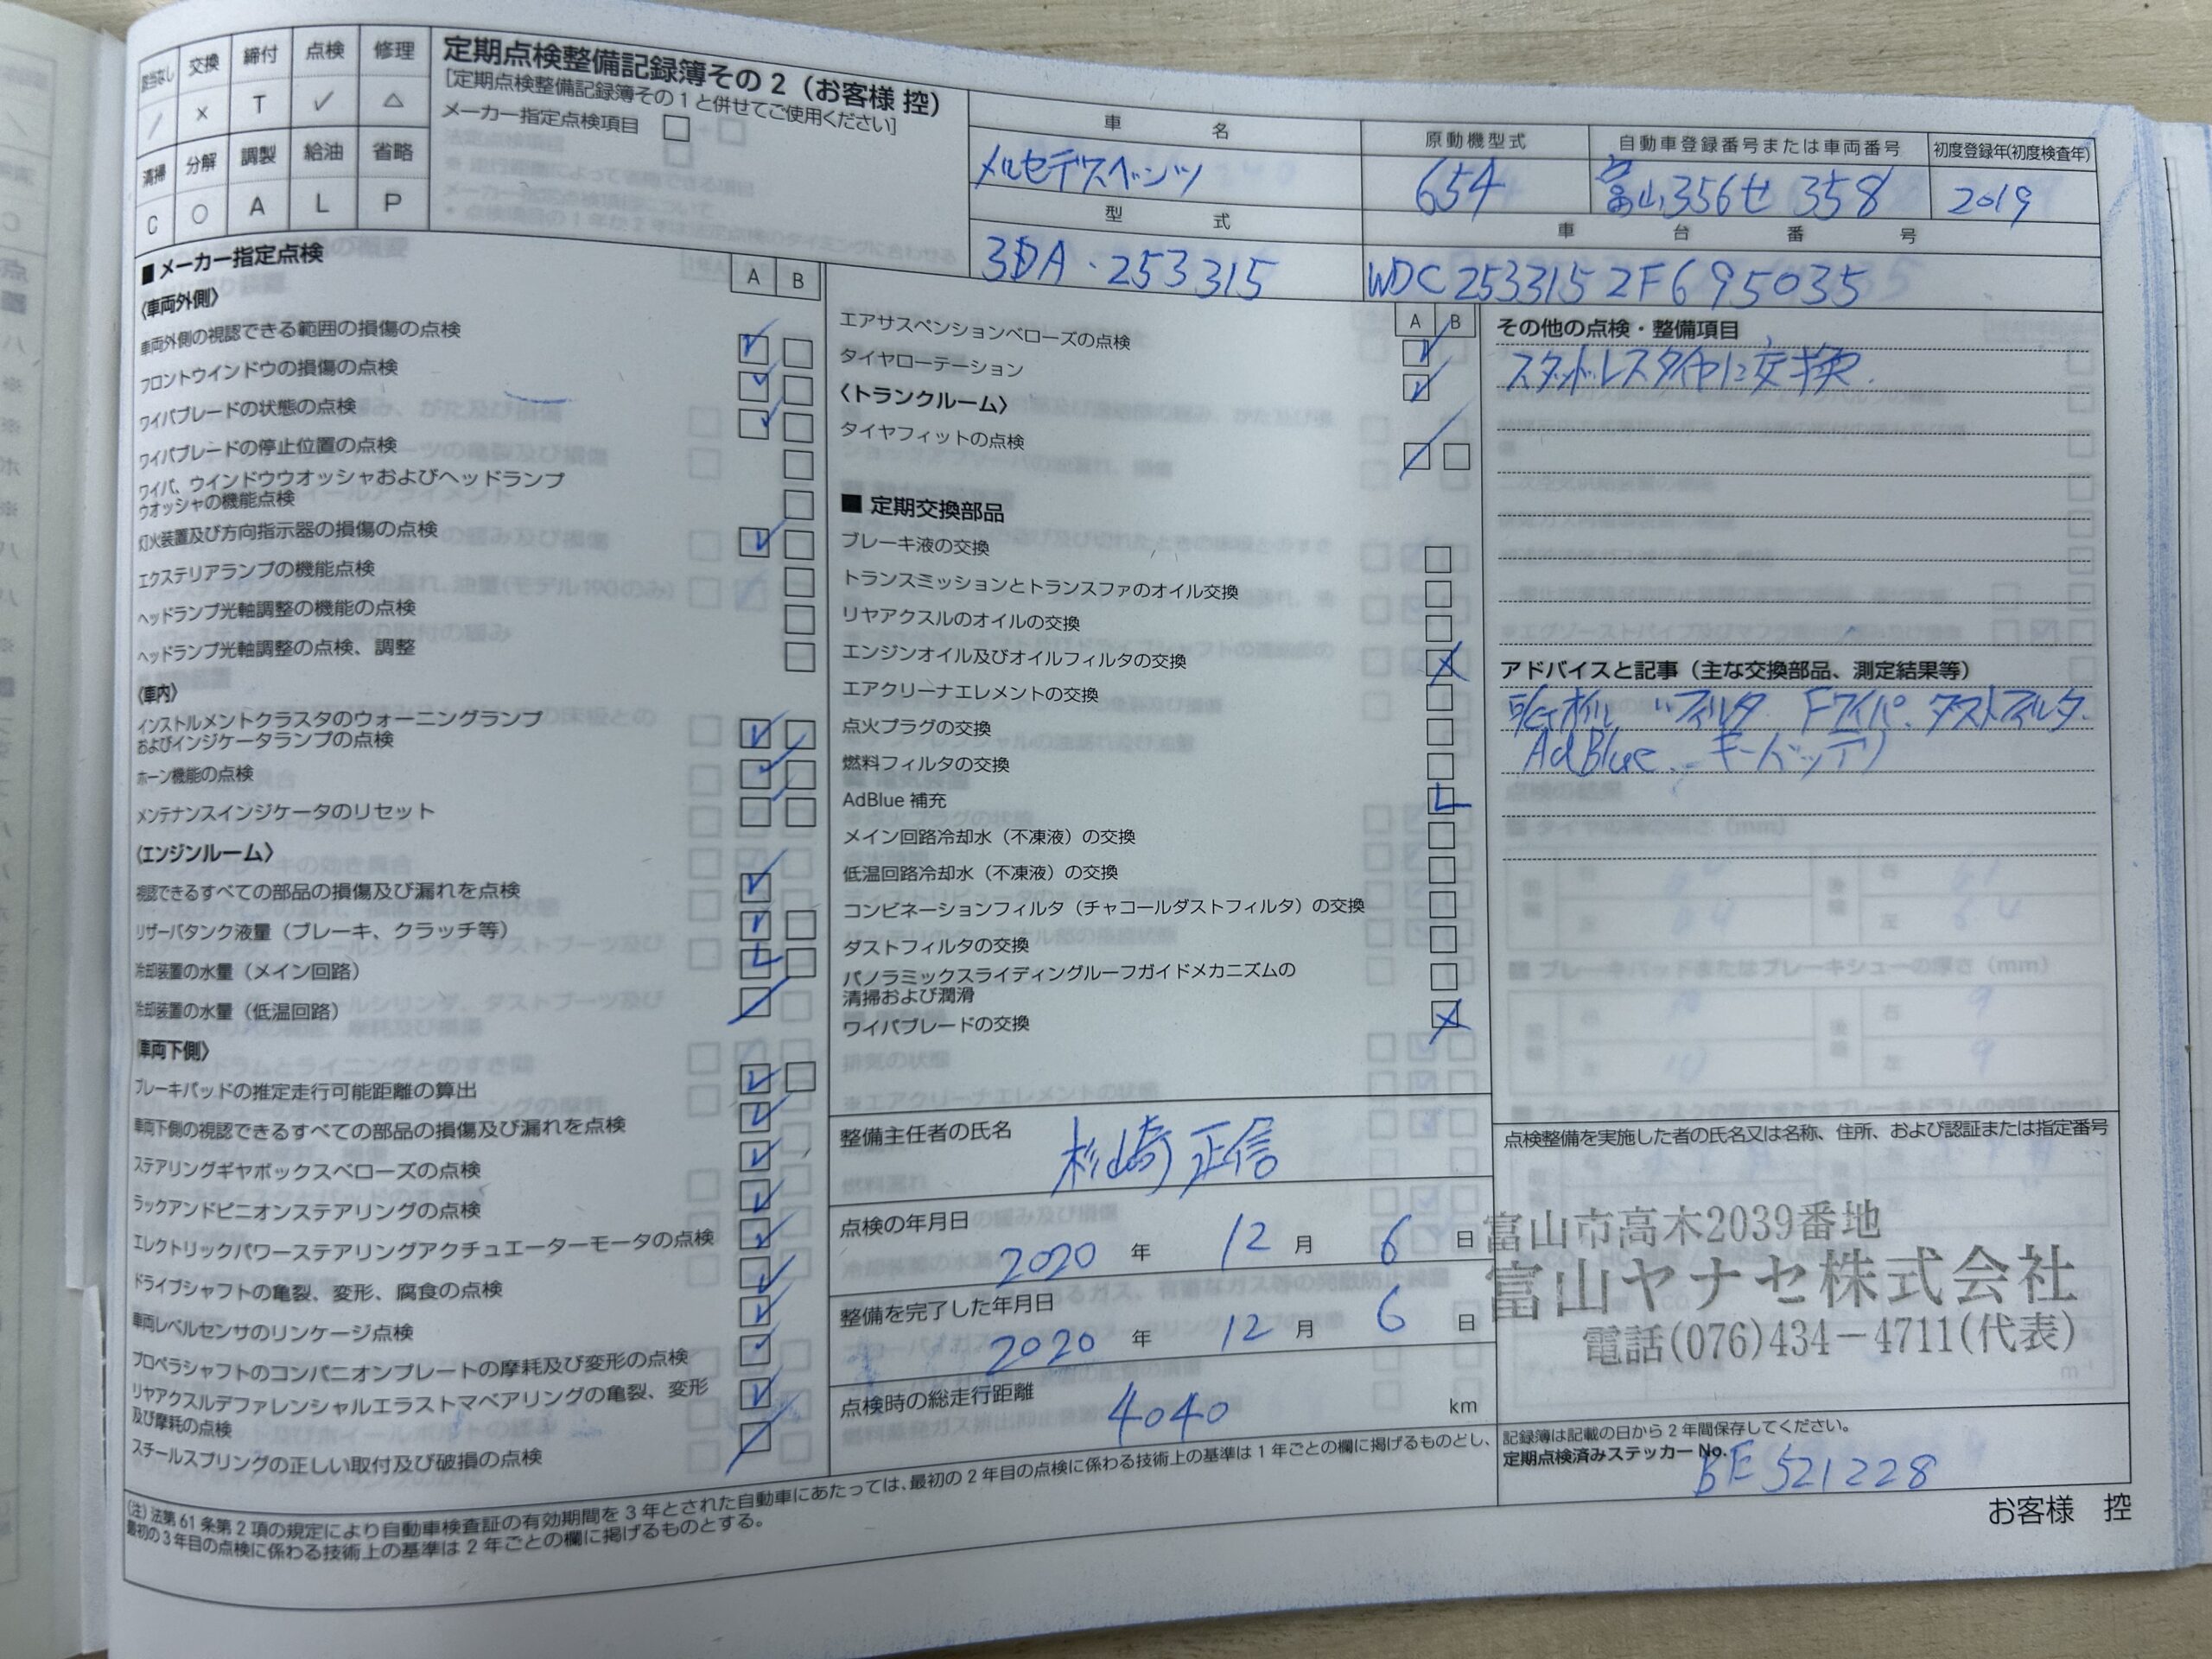 該当なし 交換 締付 点検 修理
/ × T ✓ △
清掃 分解 調製 給油 省略
C ○ A L P
定期点検整備記録簿その2（お客様 控）
[定期点検整備記録簿その1と併せてご使用ください]
メーカー指定点検項目
車名
メルセデスベンツ
原動機型式
654
自動車登録番号または車両番号
富山356せ 358
初度登録年(初度検査年)
2019
型式
3DA・253315
車台番号
WDC2533152F695035
■メーカー指定点検
A B
〈車両外側〉
車両外側の視認できる範囲の損傷の点検
フロントウインドウの損傷の点検
ワイパブレードの状態の点検
ワイパブレードの停止位置の点検
ワイパ、ウインドウウオッシャおよびヘッドランプ
ウオッシャの機能点検
灯火装置及び方向指示器の損傷の点検
エクステリアランプの機能点検
ヘッドランプ光軸調整の機能の点検
ヘッドランプ光軸調整の点検、調整
〈車内〉
インストルメントクラスタのウォーニングランプ
およびインジケータランプの点検
ホーン機能の点検
メンテナンスインジケータのリセット
〈エンジンルーム〉
視認できるすべての部品の損傷及び漏れを点検
リザーバタンク液量（ブレーキ、クラッチ等）
冷却装置の水量（メイン回路） L
冷却装置の水量（低温回路）
〈車両下側〉
ブレーキパッドの推定走行可能距離の算出
車両下側の視認できるすべての部品の損傷及び漏れを点検
ステアリングギヤボックスベローズの点検
ラックアンドピニオンステアリングの点検
エレクトリックパワーステアリングアクチュエーターモータの点検
ドライブシャフトの亀裂、変形、腐食の点検
車両レベルセンサのリンケージ点検
プロペラシャフトのコンパニオンプレートの摩耗及び変形の点検
リヤアクスルデファレンシャルエラストマベアリングの亀裂、変形
及び摩耗の点検
スチールスプリングの正しい取付及び破損の点検
A B
エアサスペンションベローズの点検
タイヤローテーション
〈トランクルーム〉
タイヤフィットの点検
■ 定期交換部品
ブレーキ液の交換
トランスミッションとトランスファのオイル交換
リヤアクスルのオイルの交換
エンジンオイル及びオイルフィルタの交換 ×
エアクリーナエレメントの交換
点火プラグの交換
燃料フィルタの交換
AdBlue 補充 L
メイン回路冷却水（不凍液）の交換
低温回路冷却水（不凍液）の交換
コンビネーションフィルタ（チャコールダストフィルタ）の交換
ダストフィルタの交換
パノラミックスライディングルーフガイドメカニズムの
清掃および潤滑
ワイパブレードの交換 ×
整備主任者の氏名
杉崎 正信
点検の年月日
2020 年 12 月 6 日
整備を完了した年月日
2020 年 12 月 6 日
点検時の総走行距離
4040 km
その他の点検・整備項目
スタッドレスタイヤに交換.
アドバイスと記事（主な交換部品、測定結果等）
〃フィルタ Fワイパ. ダストフィルタ.
AdBlue. キーバッテリ
点検整備を実施した者の氏名又は名称、住所、および認証または指定番号
富山市高木2039番地
富山ヤナセ株式会社
電話(076)434－4711(代表)
記録簿は記載の日から2年間保存してください。
定期点検済みステッカー No.
BE521228
(注)法第61条第2項の規定により自動車検査証の有効期間を3年とされた自動車にあたっては、最初の2年目の点検に係わる技術上の基準は1年ごとの欄に掲げるものどし、
最初の3年目の点検に係わる技術上の基準は2年ごとの欄に掲げるものとする。
お客様 控